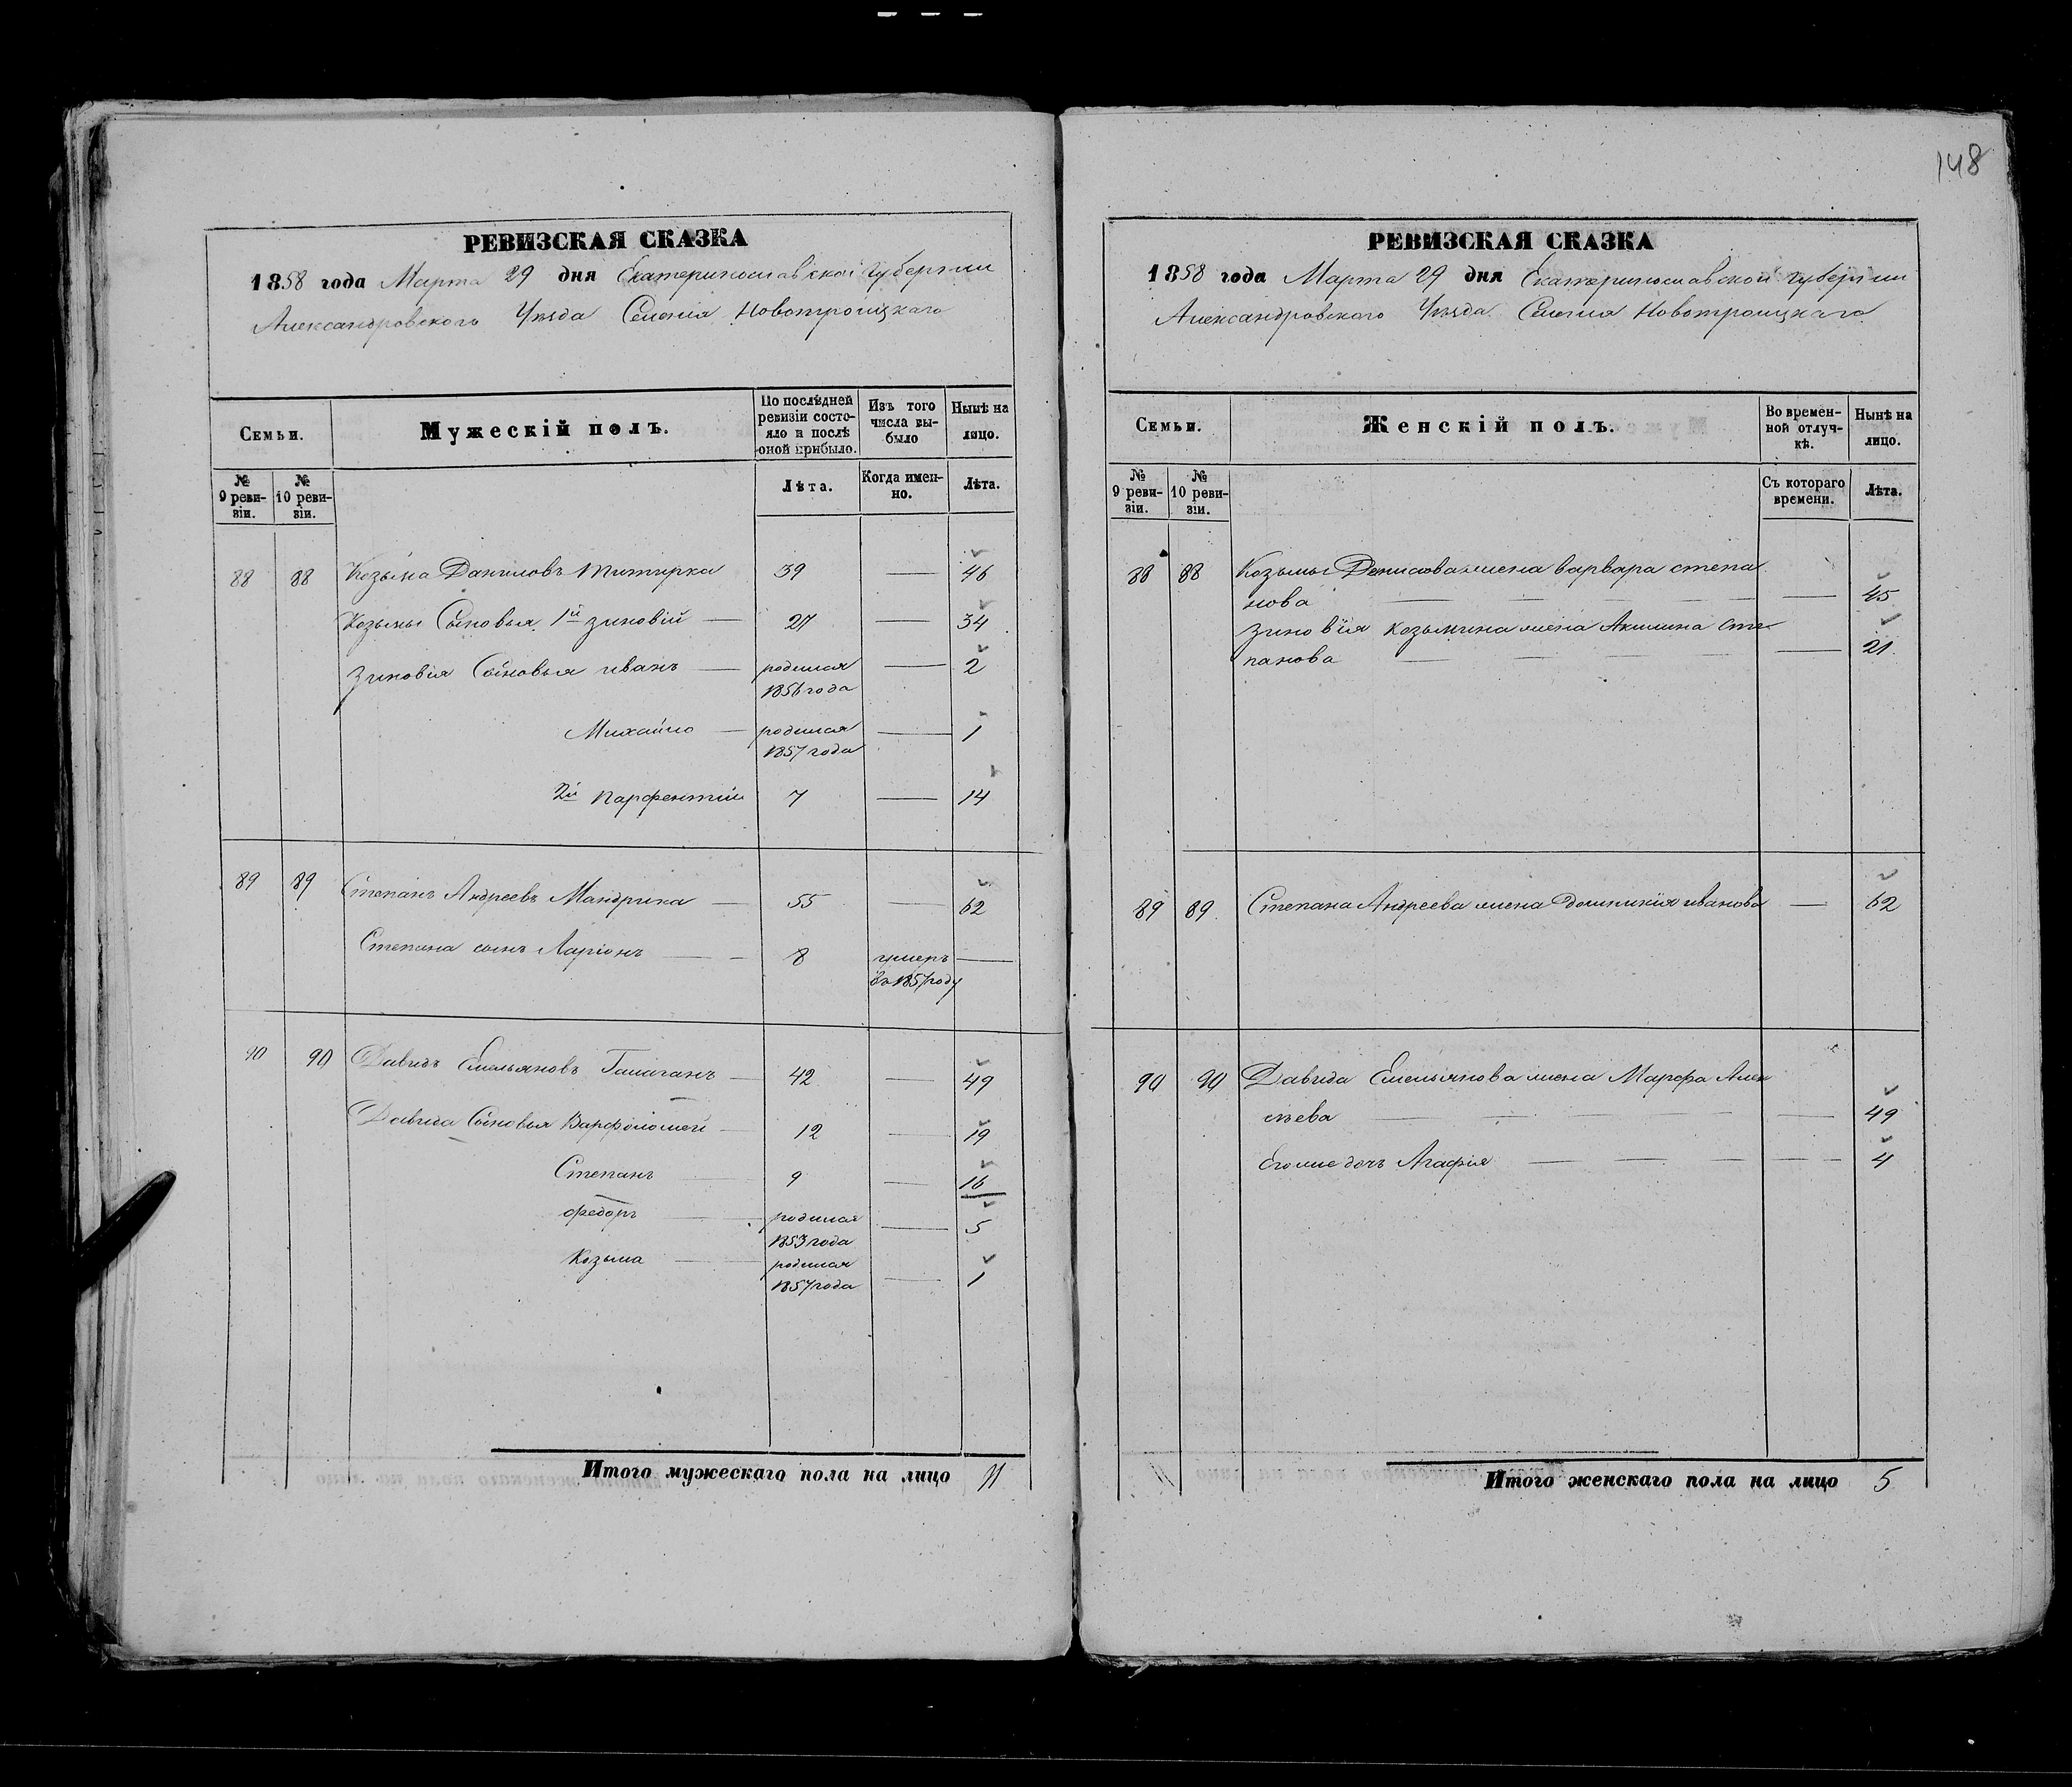 148
РЕВИЗСКАЯ СКАЗКА
1858 года Марта 29 дня Екатеринославской Губернии
Александровского Уѣзда Селенія Новотроицкаго
Семьи.
Мужескій полъ.
По послѣдней ревизіи состояло и послѣ оной прибыло.
Изъ того числа выбыло
Нынѣ на лицо.
№ 9 ревизіи.
№ 10 ревизіи.
Лѣта.
Когда именно.
Лѣта.
88 88 Козьма Даниловъ Титирка 39 — 46
Козьмы Сыновья 1й зиновій — 27 — 34
Зиновія Сыновья иванъ — родился 1856 года — 2
Михайло — родился 1857 года — 1
2й Парфентій 7 — 14
89 89 Степанъ Андреевъ Мандрика — 55 — 62
Степана сынъ Ларіонъ — 8 умеръ въ 1857 году —
90 90 Давидъ Емельяновъ Галаганъ — 42 — 49
Давида Сыновья Варфоломей — 12 — 19
Степанъ — 9 — 16
Федоръ — родился 1853 года — 5
Козьма — родился 1857 года — 1
Итого мужескаго пола на лицо 11
РЕВИЗСКАЯ СКАЗКА
1858 года Марта 29 дня Екатеринославской Губернии
Александровского Уѣзда Селенія Новотроицкаго
Семьи.
Женскій полъ.
Во временной отлучкѣ.
Нынѣ на лицо.
№ 9 ревизіи.
№ 10 ревизіи.
Съ котораго времени.
Лѣта.
88 88 Козьмы Денисова жена варвара степа
нова — 45
Зиновія Козьмина жена Акилина Сте
панова — 21
89 89 Степана Андреева жена Домникія иванова — 62
90 90 Давида Емельянова жена Марфа Алек
сѣева — 49
Его же дочь Агафія — 4
Итого женскаго пола на лицо 5